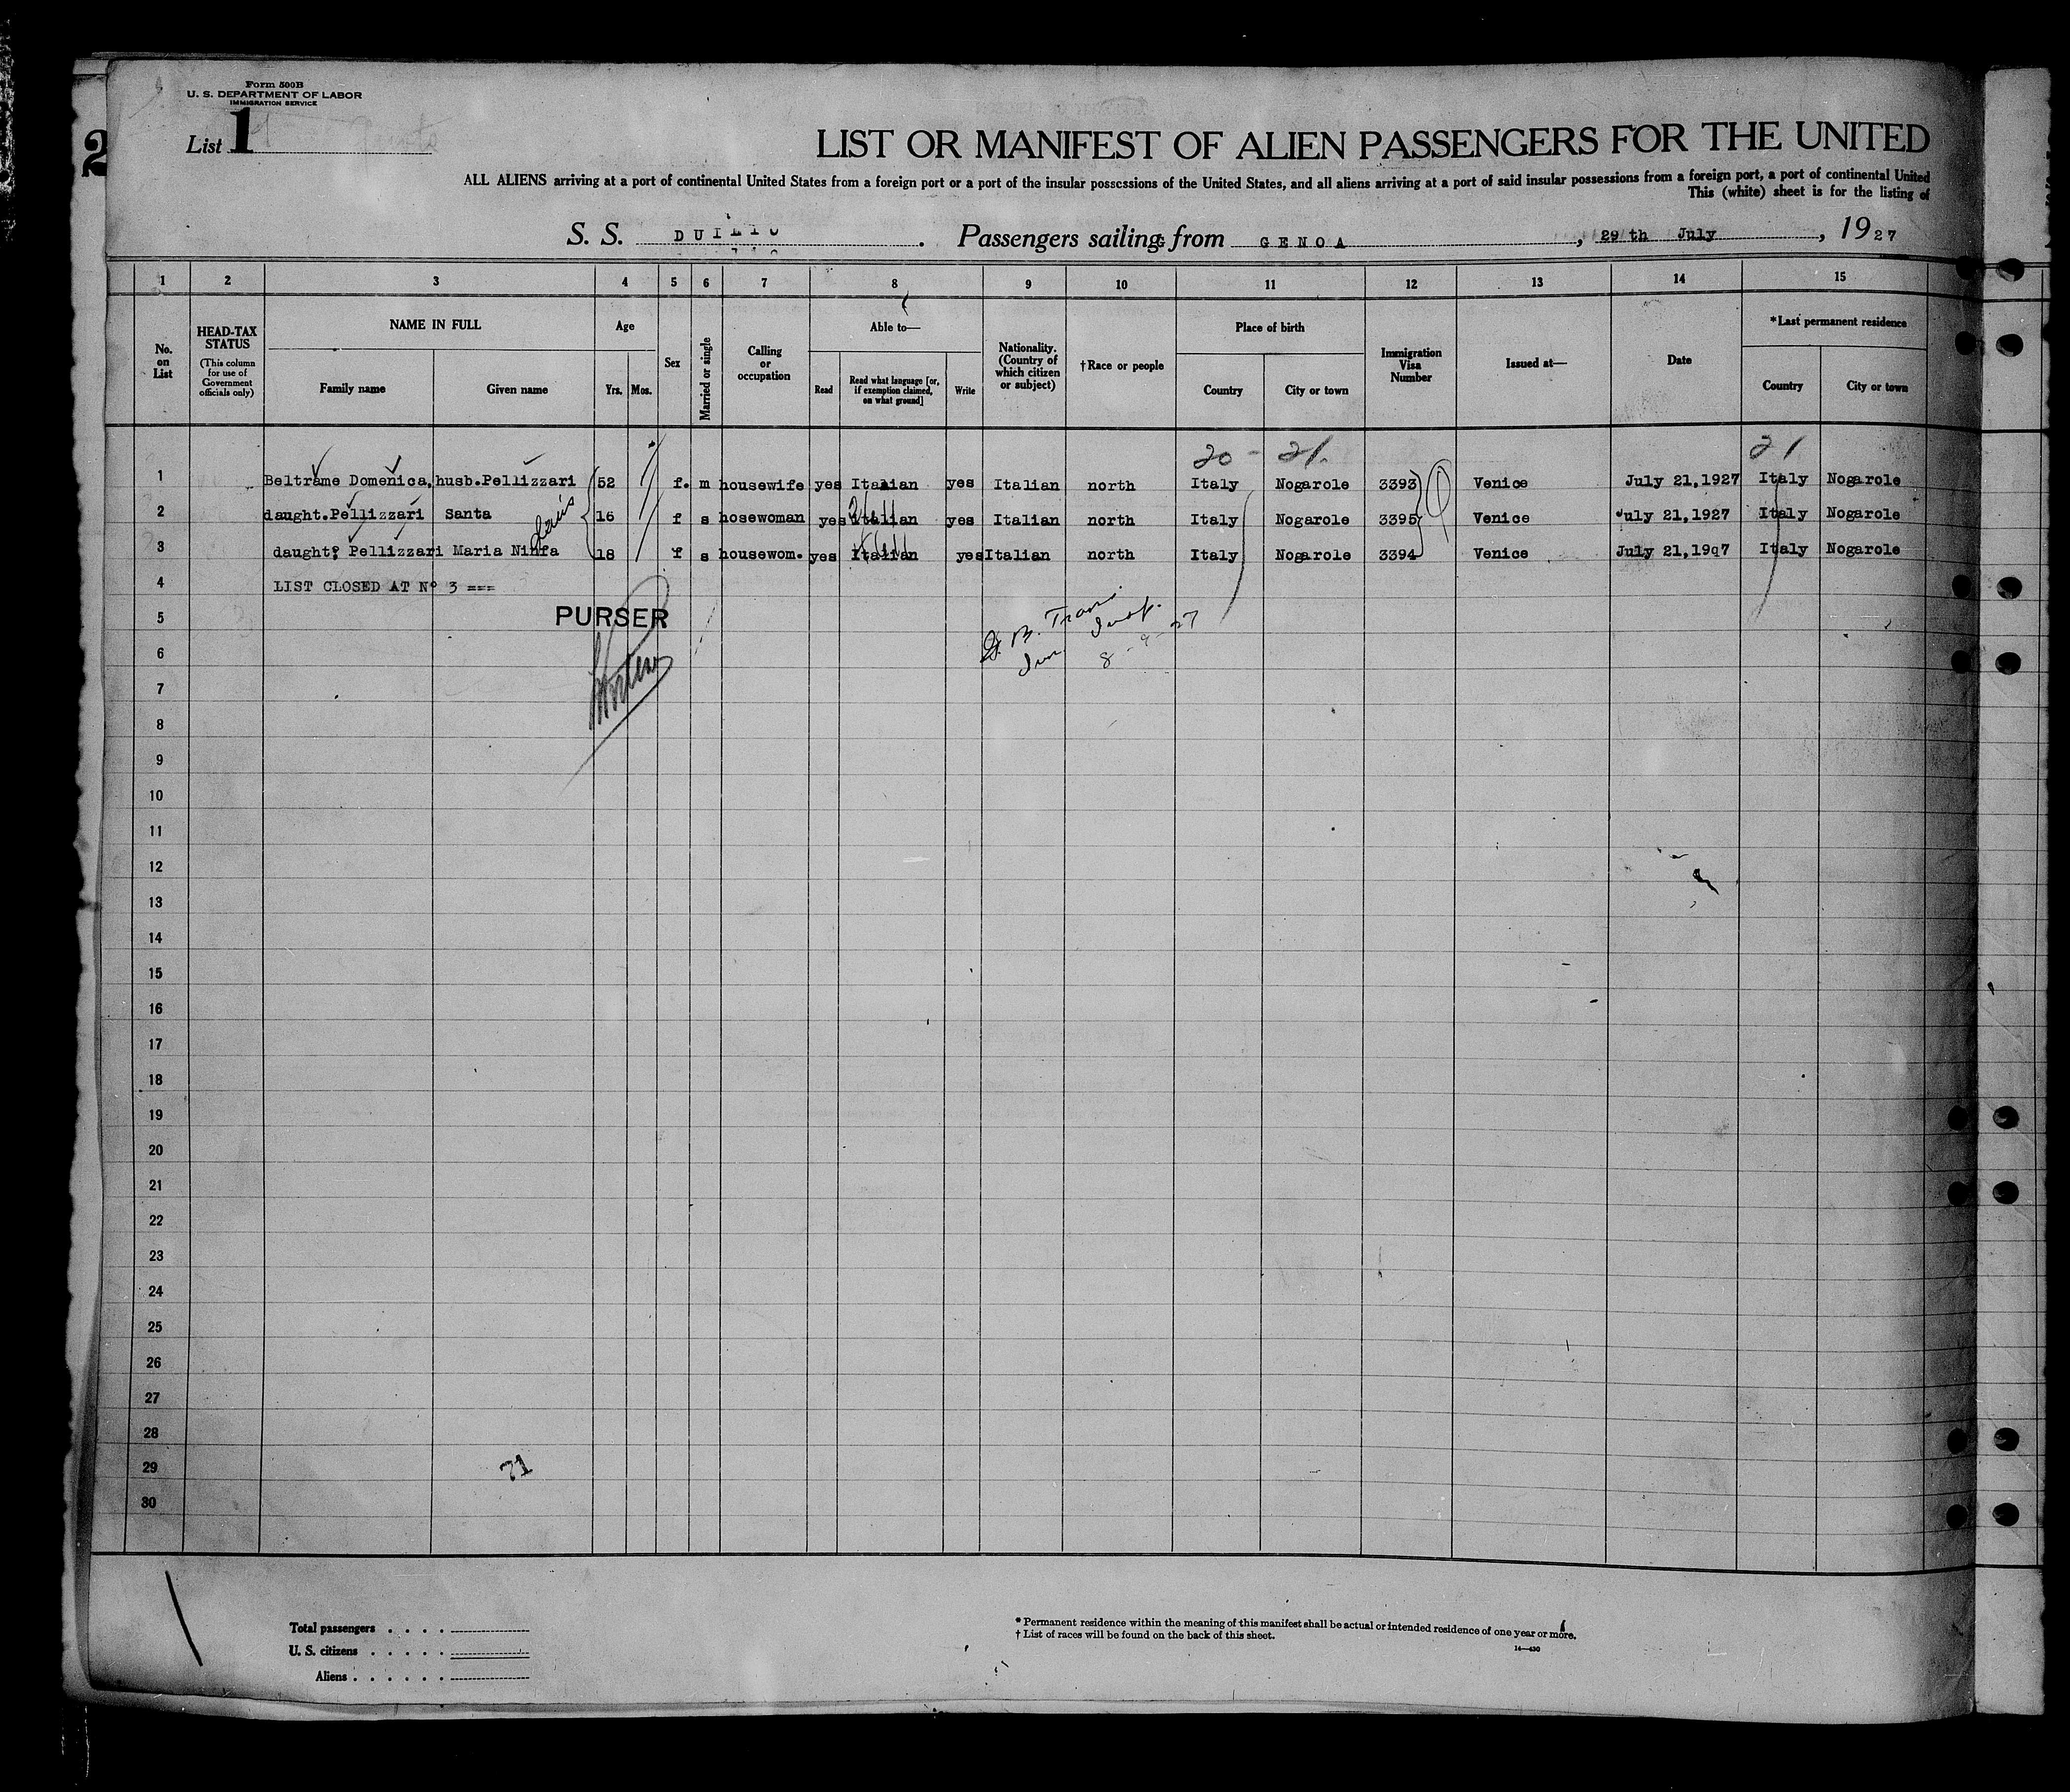 Form 500B
U. S. DEPARTMENT OF LABOR
IMMIGRATION SERVICE
2
List 1
LIST OR MANIFEST OF ALIEN PASSENGERS FOR THE UNITED
ALL ALIENS arriving at a port of continental United States from a foreign port or a port of the insular possessions of the United States, and all aliens arriving at a port of said insular possessions from a foreign port, a port of continental United
This (white) sheet is for the listing of
S. S. DUILIO. Passengers sailing from GENOA, 29 th July, 1927
1 2 3 4 5 6 7 8 9 10 11 12 13 14 15
No. on List
HEAD-TAX STATUS
(This column for use of Government officials only)
NAME IN FULL
Family name Given name
Age
Yrs. Mos.
Sex
Married or single
Calling or occupation
Able to—
Read
Read what language [or, if exemption claimed, on what ground]
Write
Nationality. (Country of which citizen or subject)
†Race or people
Place of birth
Country City or town
Immigration Visa Number
Issued at—
Date
*Last permanent residence
Country City or town
20 - 21. 21
1 Beltrame Domenica, husb.Pellizzari 52 f. m housewife yes Italian yes Italian north Italy Nogarole 3393 Venice July 21,1927 Italy Nogarole
2 daught.Pellizzari Santa 16 f s hosewoman yes Italian yes Italian north Italy Nogarole 3395 Venice July 21,1927 Italy Nogarole
3 daught; Pellizzari Maria Ninfa 18 f s housewom. yes Italian yes Italian north Italy Nogarole 3394 Venice July 21,1927 Italy Nogarole
4 LIST CLOSED AT Nº 3 ===
5 PURSER
6
8-9-27
7
8
9
10
11
12
13
14
15
16
17
18
19
20
21
22
23
24
25
26
27
28
29 71
30
Total passengers . . . .
U. S. citizens . . . . .
Aliens . . . . . .
* Permanent residence within the meaning of this manifest shall be actual or intended residence of one year or more.
† List of races will be found on the back of this sheet.
14—430